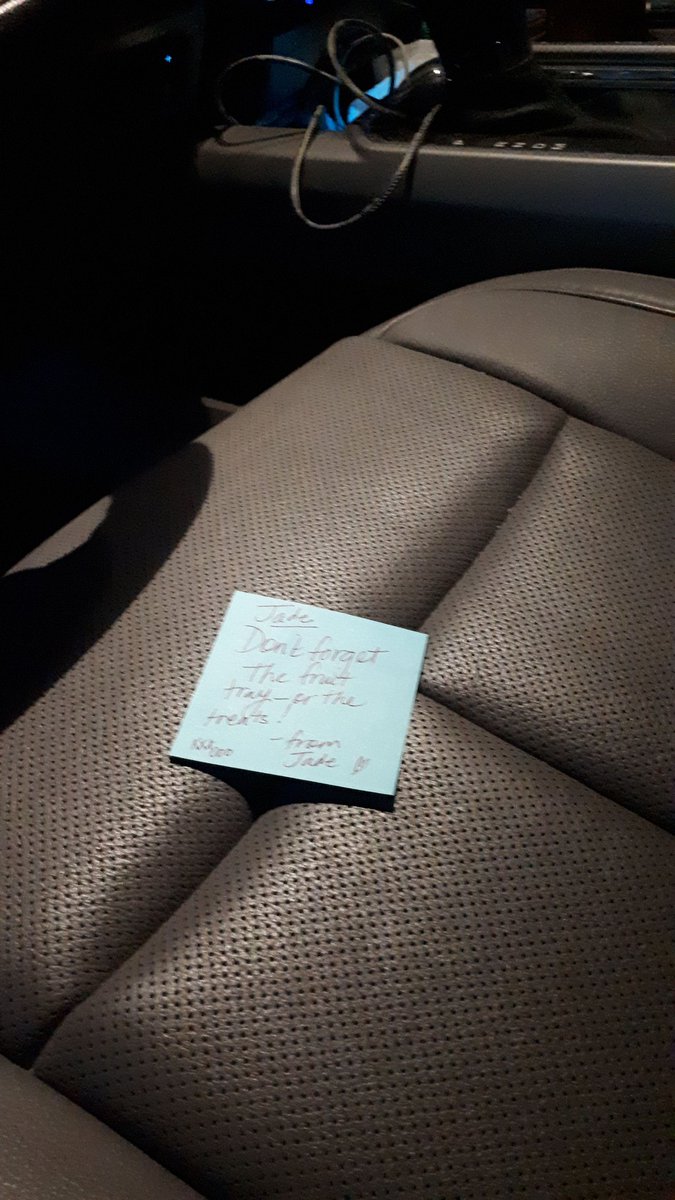 Jade
Don't forget
the fruit
tray - or the
treats!
- from
Jade